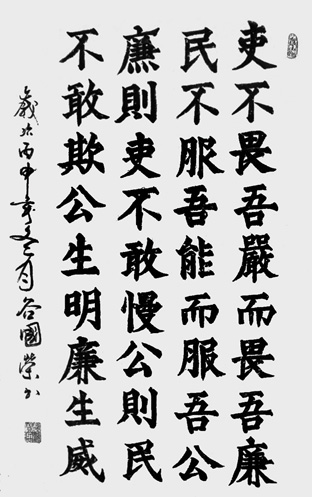 吏不畏吾嚴而畏吾廉
民不服吾能而服吾公
廉則吏不敢慢公則民
不敢欺公生明廉生威
歲次丙申年月谷國榮书